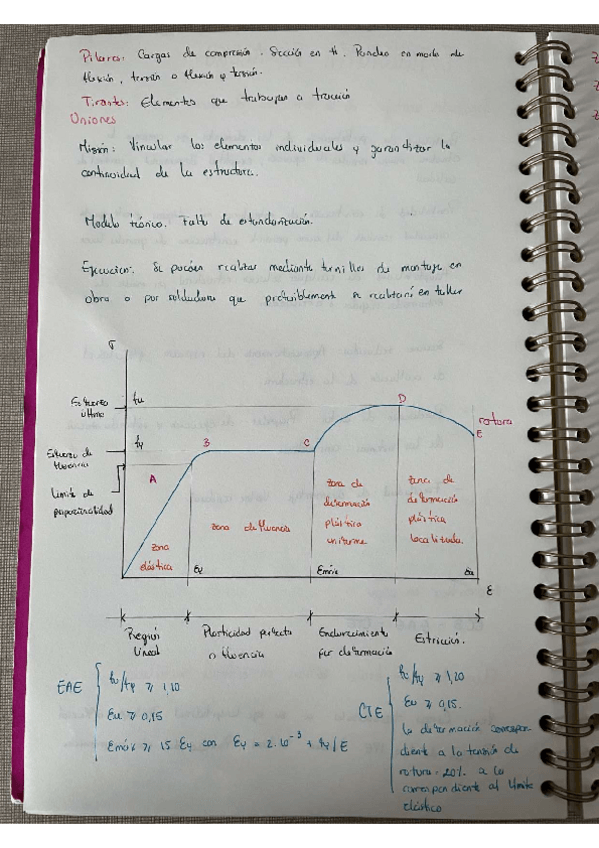 Pilares: Cargas de compresión. Sección en H. Pandeo en modo de
flexión, torsión o flexión y torsión.
Tirantes: Elementos que trabajan a tracción
Uniones
Misión: Vincular los elementos individuales y garantizar la
continuidad de la estructura.
Modelo teórico. Falta de estandarización.
Ejecución: Se pueden realizar mediante tornillos de montaje en
obra o por soldadura que preferiblemente se realizará en taller
σ
Esfuerzo
último
fu
D
rotura
E
Esfuerzo de
fluencia
fy
B
C
límite de
proporcionalidad
A
zona
elástica
zona de fluencia
zona de
deformación
plástica
uniforme
zona de
deformación
plástica
localizada.
εy
εmáx
εu
ε
Región
lineal
Plasticidad perfecta
o fluencia
Endurecimiento
por deformación
Estricción.
EAE
fu/fy ≥ 1,10
εu ≥ 0,15
εmáx ≥ 15 εy con εy = 2·10⁻³ + fy/E
CTE
fu/fy ≥ 1,20
εu ≥ 0,15.
la deformación correspon-
diente a la tensión de
rotura, 20% a la
correspondiente al límite
elástico